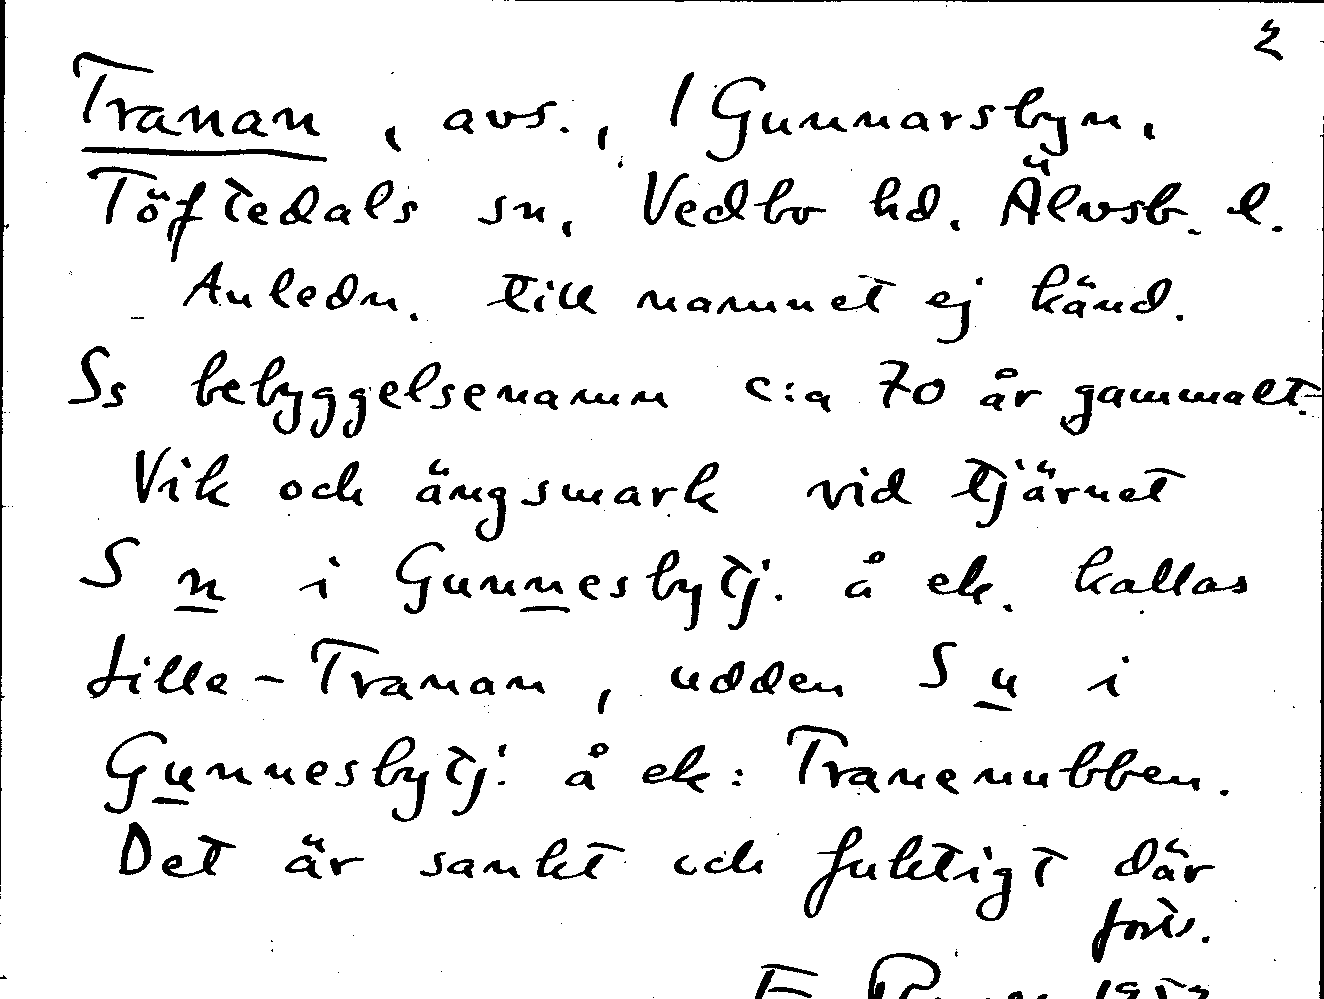 2
Tranan, avs., 1 Gunnarsbyn,
Töftedals sn, Vedbo hd. Älvsb. l.
Anledn. till namnet ej känd.
Ss bebyggelsenamn c:a 70 år gammalt.
Vik och ängsmark vid tjärnet
S n i Gunnesbytj. å ek. kallas
Lille-Tranan, udden S u i
Gunnesbytj. å ek: Tranenubben.
Det är sankt och fuktigt där
forts.